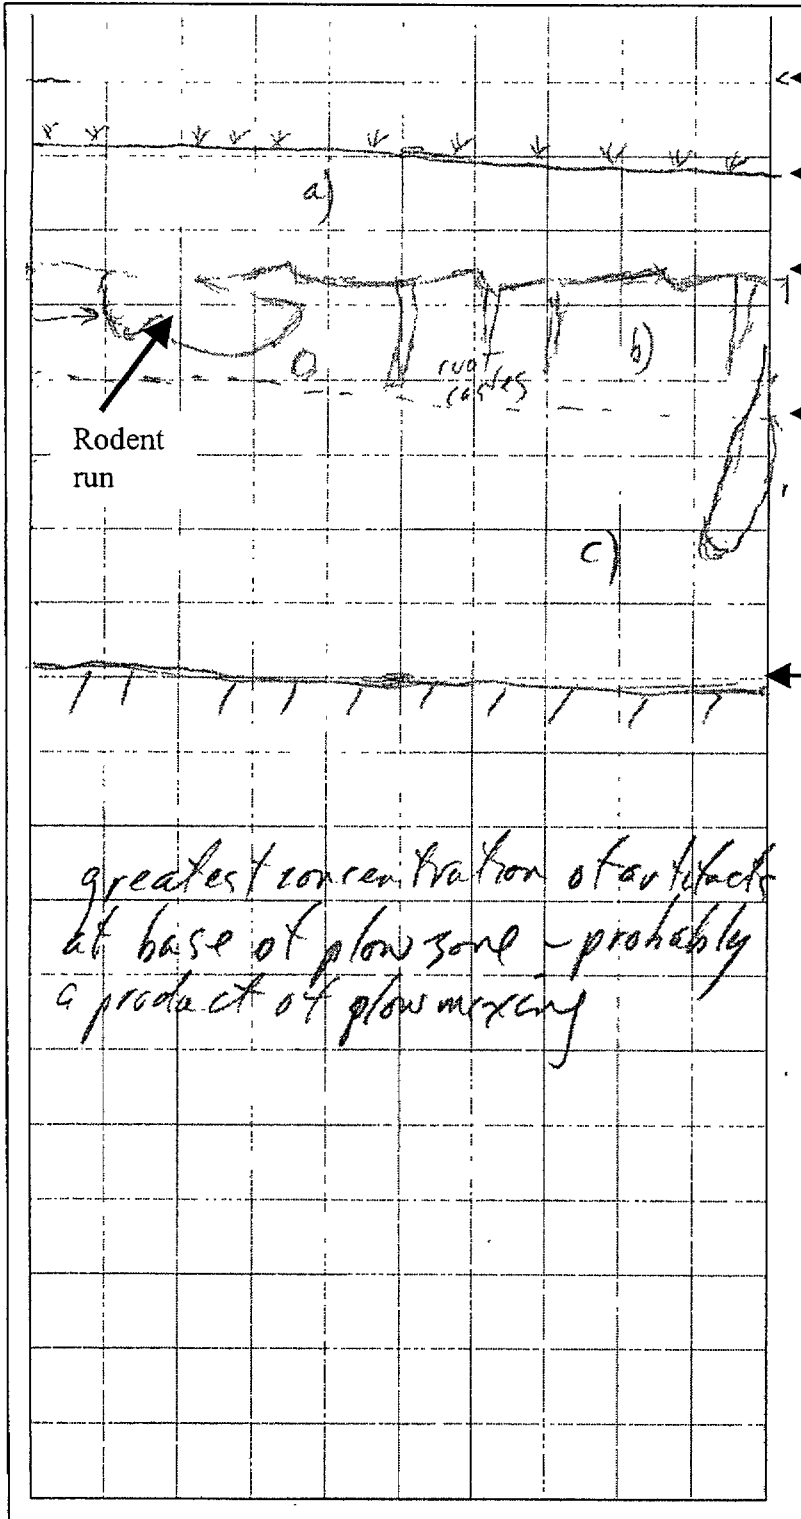 a)
root
castes
b)
Rodent
run
c)
greatest concentration of artifacts
at base of plow zone - probably
a product of plow mixing